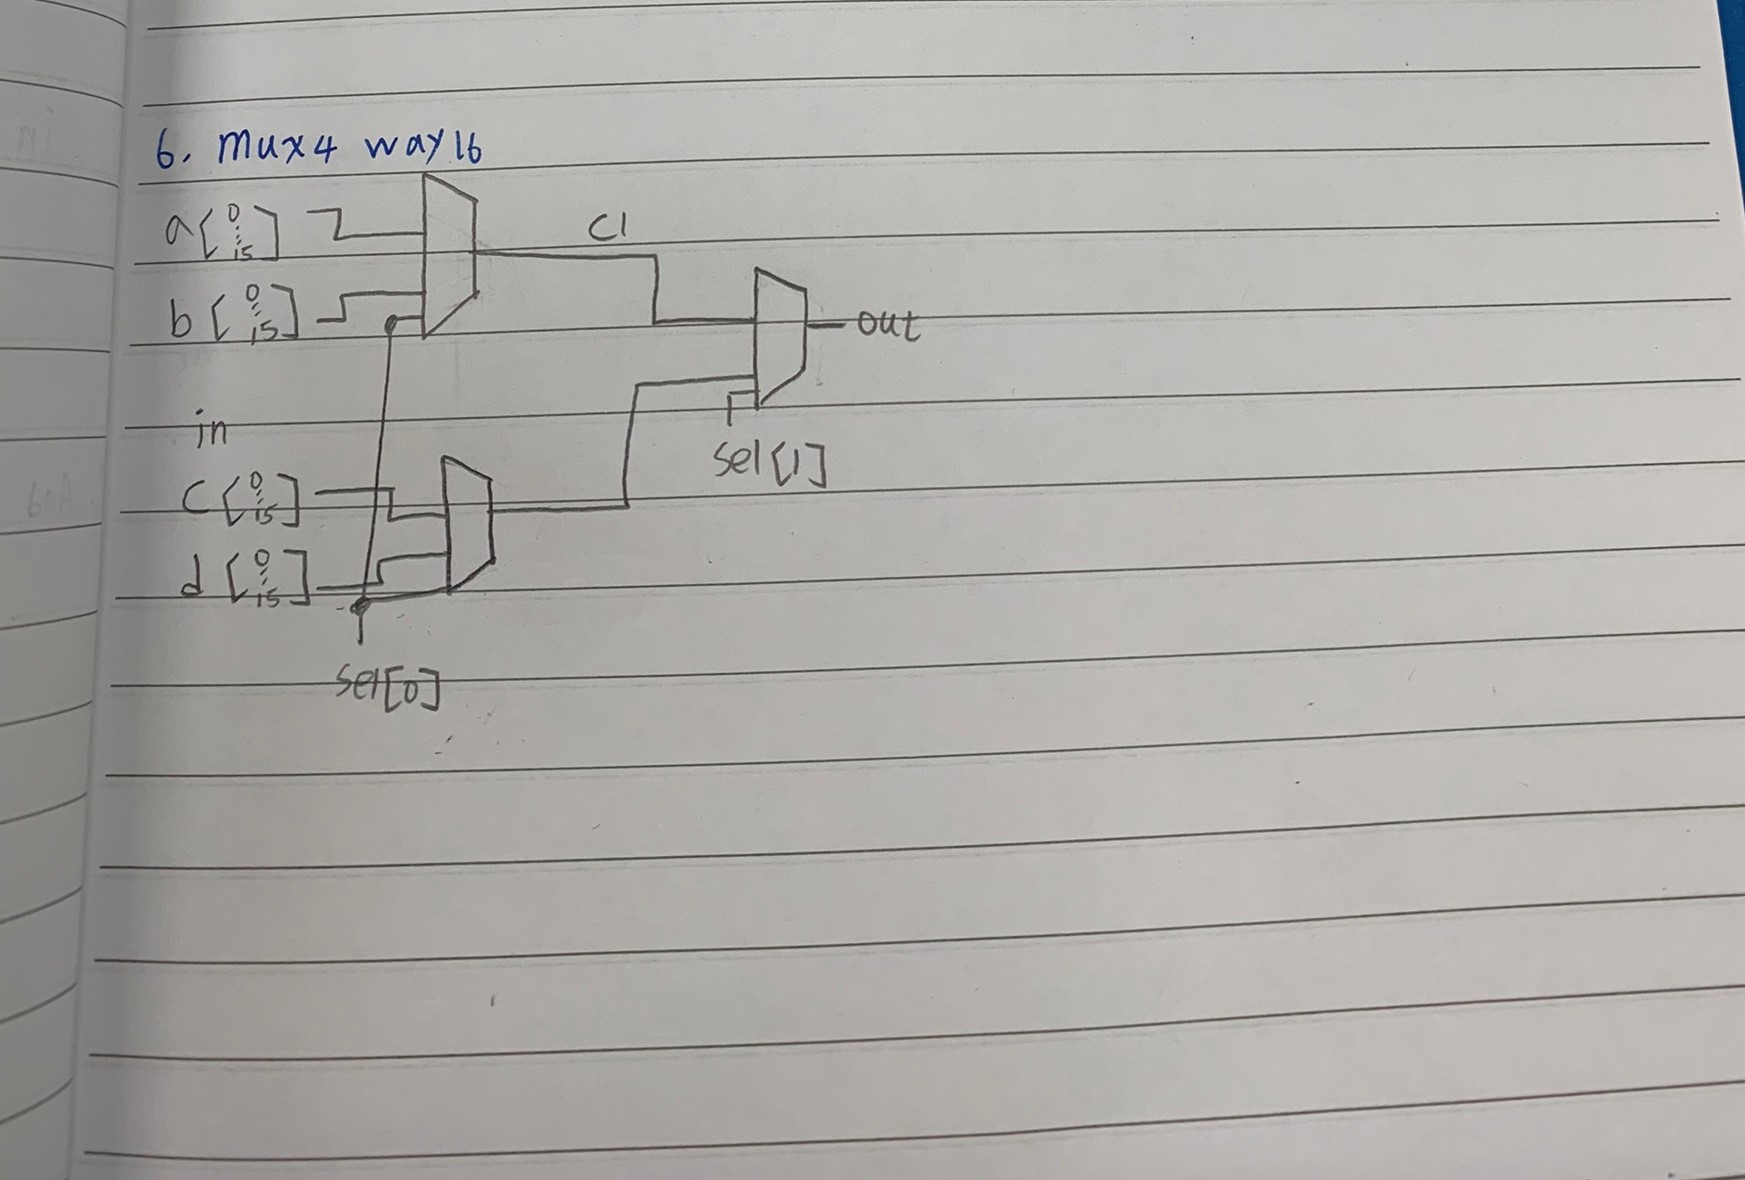 6. Mux4 way16
a[0...15]
C1
b[0...15]
out
in
sel[1]
c[0...15]
d[0...15]
sel[0]